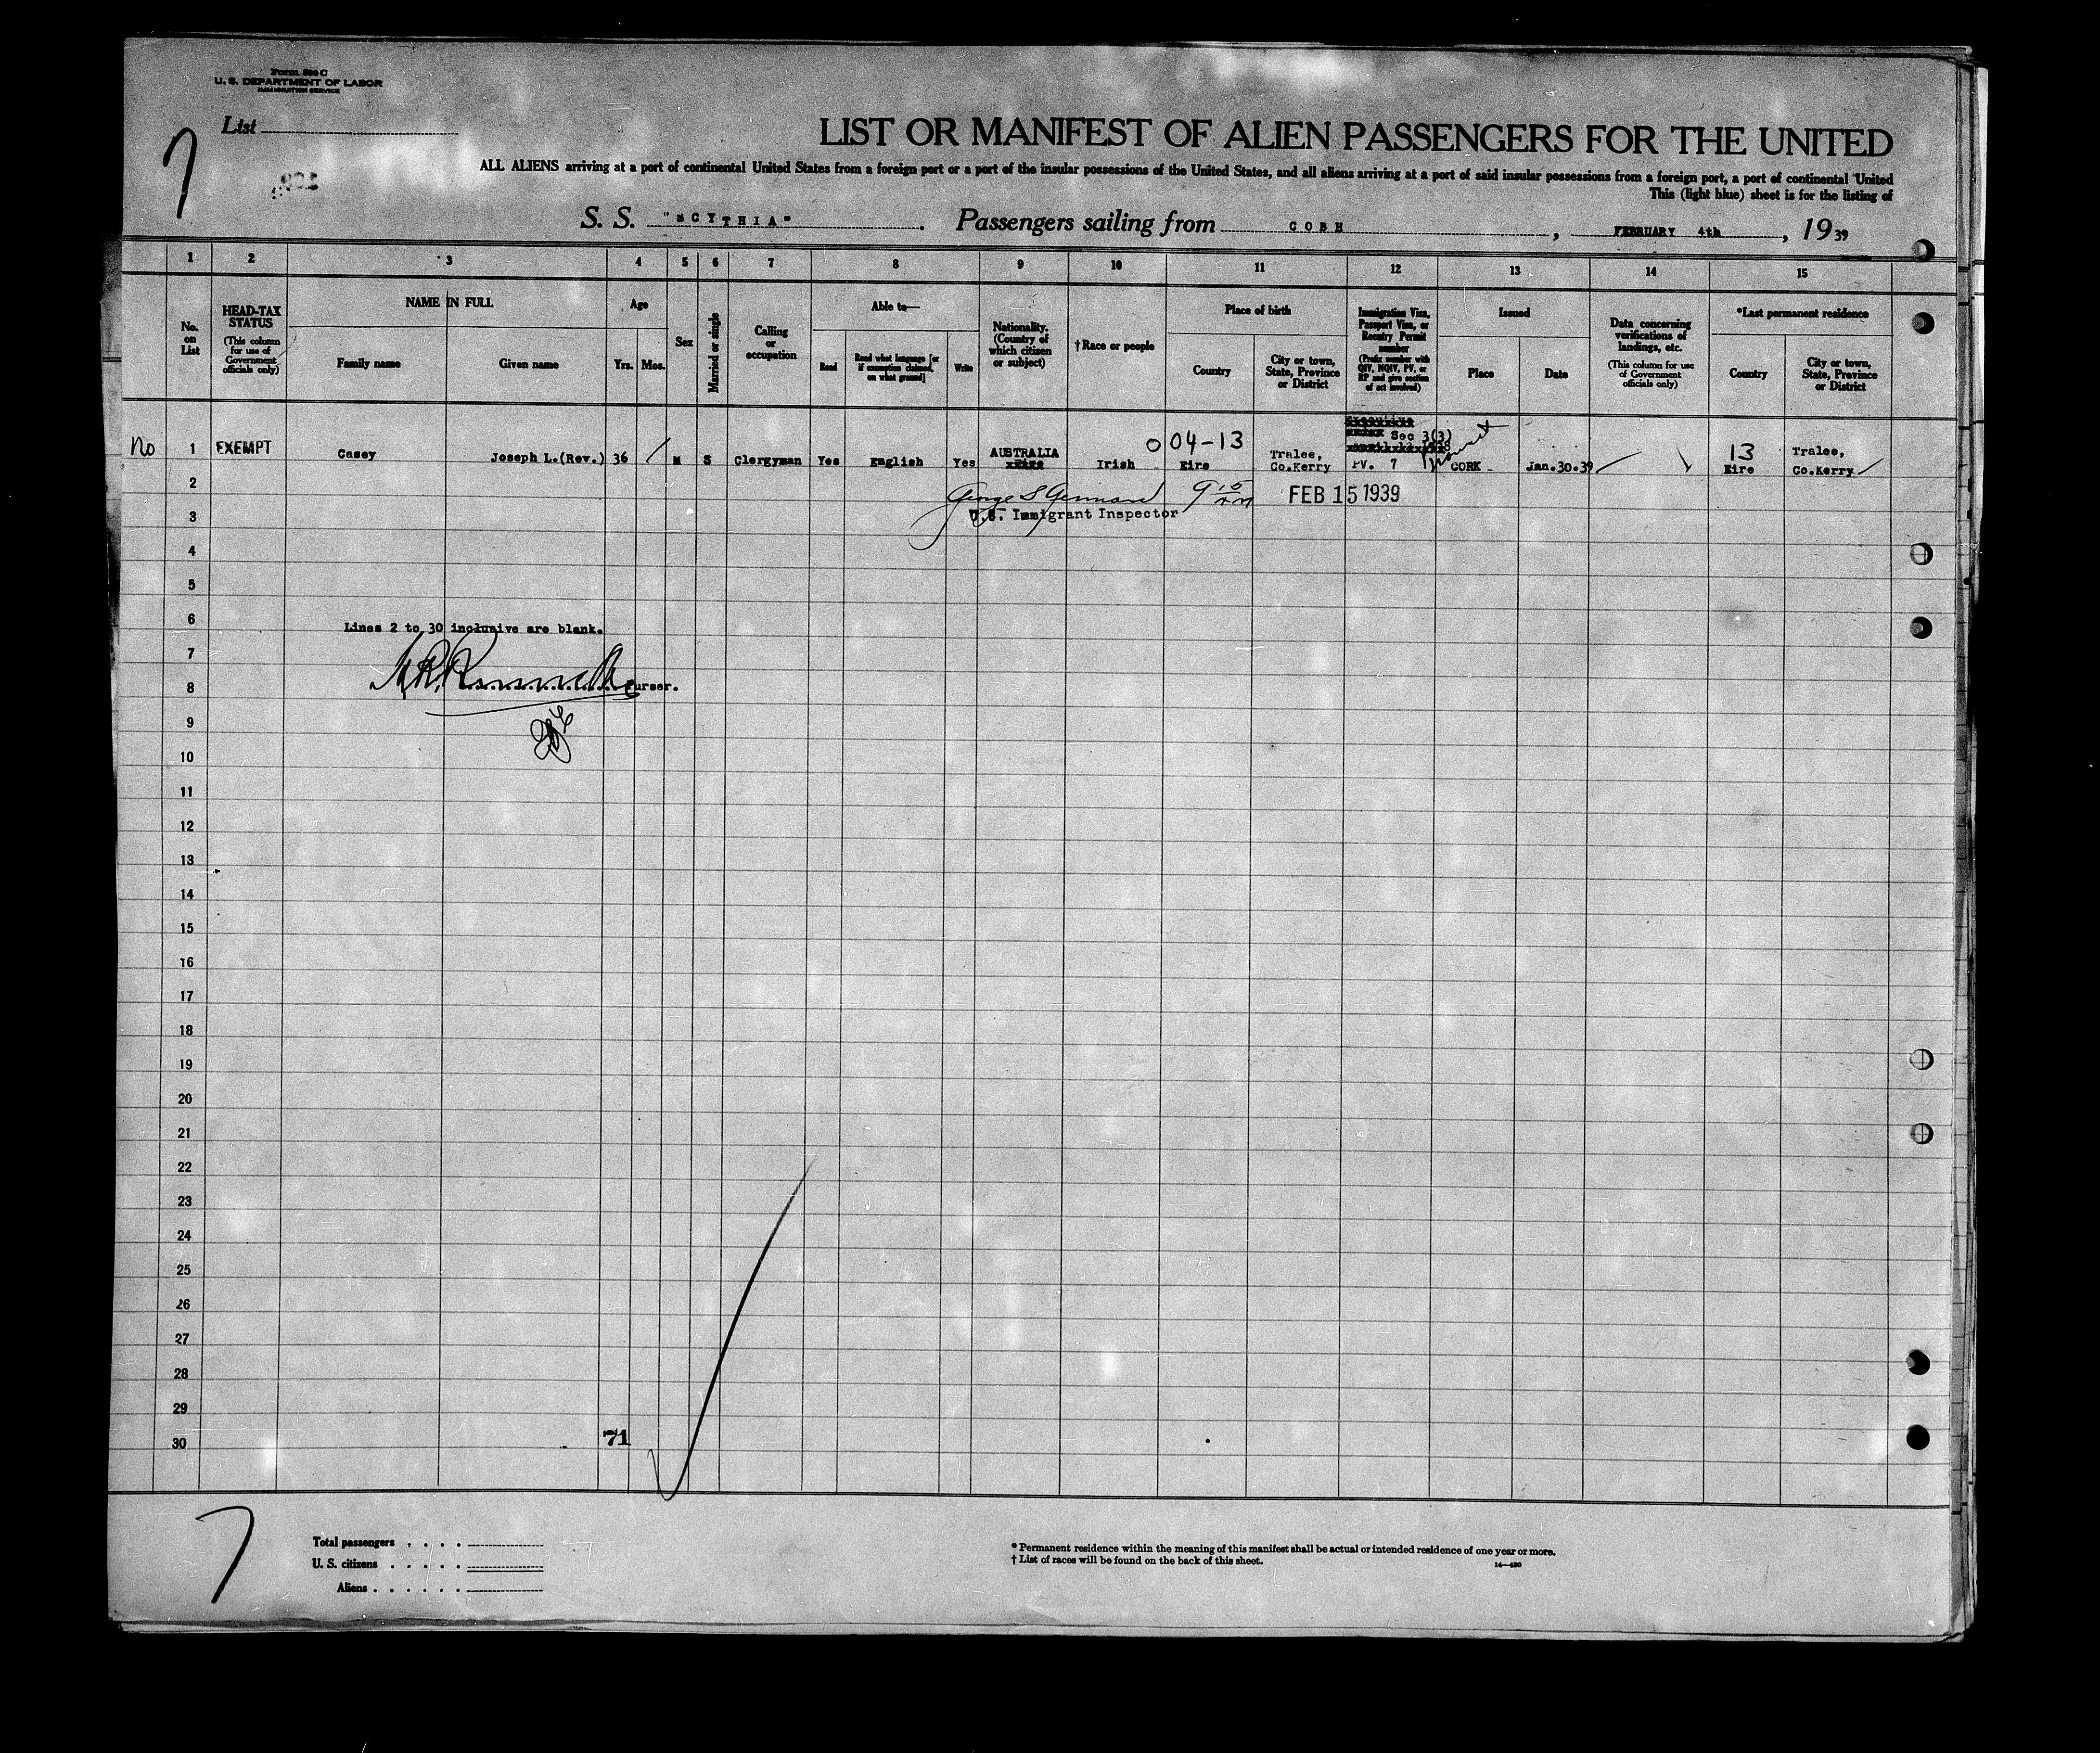 Form 500 C
U. S. DEPARTMENT OF LABOR
IMMIGRATION SERVICE
7
List
LIST OR MANIFEST OF ALIEN PASSENGERS FOR THE UNITED
ALL ALIENS arriving at a port of continental United States from a foreign port or a port of the insular possessions of the United States, and all aliens arriving at a port of said insular possessions from a foreign port, a port of continental United
This (light blue) sheet is for the listing of
S. S. "SCYTHIA". Passengers sailing from COBH, FEBRUARY 4th, 1939
1 2 3 4 5 6 7 8 9 10 11 12 13 14 15
No. on List
HEAD-TAX STATUS (This column for use of Government officials only)
NAME IN FULL
Family name
Given name
Age
Yrs. Mos.
Sex
Married or single
Calling or occupation
Able to—
Read
Read what language [or if exemption claimed, on what ground]
Write
Nationality. (Country of which citizen or subject)
†Race or people
Place of birth
Country
City or town, State, Province or District
Immigration Visa, Passport Visa, or Reentry Permit number (Prefix number with QIV, NQIV, PV, or RP and give section of act involved)
Issued
Place
Date
Data concerning verifications of landings, etc. (This column for use of Government officials only)
*Last permanent residence
Country
City or town, State, Province or District
no 1 EXEMPT Casey Joseph L.(Rev.) 36 M S Clergyman Yes English Yes AUSTRALIA Irish 0 04-13 Eire Tralee, Co.Kerry Sec 3(3) PV. 7 CORK Jan.30.39 13 Eire Tralee, Co.Kerry
2 9 15 FEB 15 1939
3 U.S. Immigrant Inspector
4
5
6 Lines 2 to 30 inclusive are blank.
7
8 Purser.
9
10
11
12
13
14
15
16
17
18
19
20
21
22
23
24
25
26
27
28
29
30 71
7
Total passengers
U. S. citizens
Aliens
* Permanent residence within the meaning of this manifest shall be actual or intended residence of one year or more.
† List of races will be found on the back of this sheet.
14—430